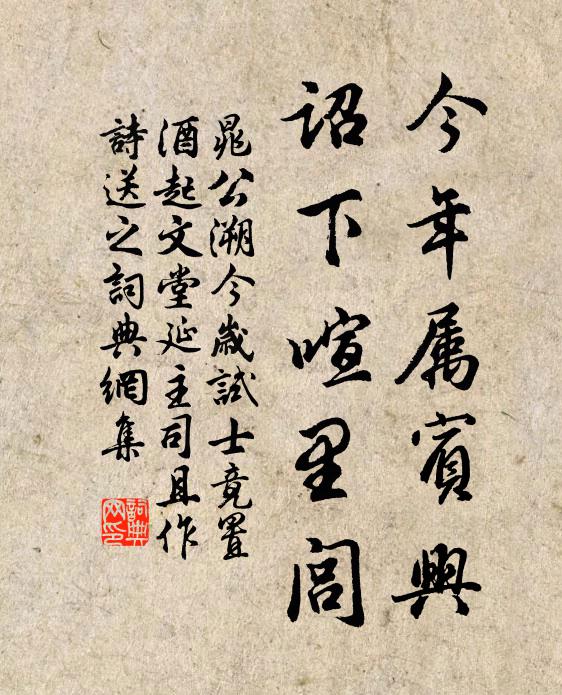 今年属賓興
詔下喧里閭
晁公溯今歲試士竟置
酒起文堂延主司且作
詩送之詞典網集
詞典網印